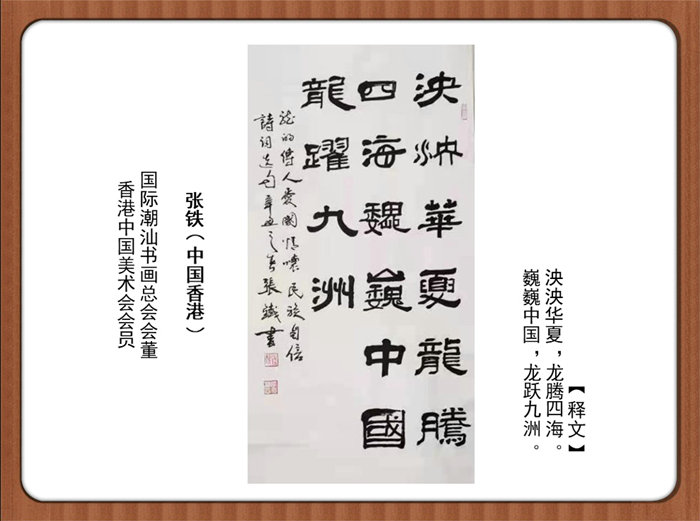 【释文】
泱泱华夏，龙腾四海。
巍巍中国，龙跃九洲。
泱泱華夏龍騰
四海魏巍中國
龍躍九洲
龍的傳人愛國情懷民族自信
詩詞選句辛丑之春張鐵書
张铁（中国香港）
国际潮汕书画总会会董
香港中国美术会会员